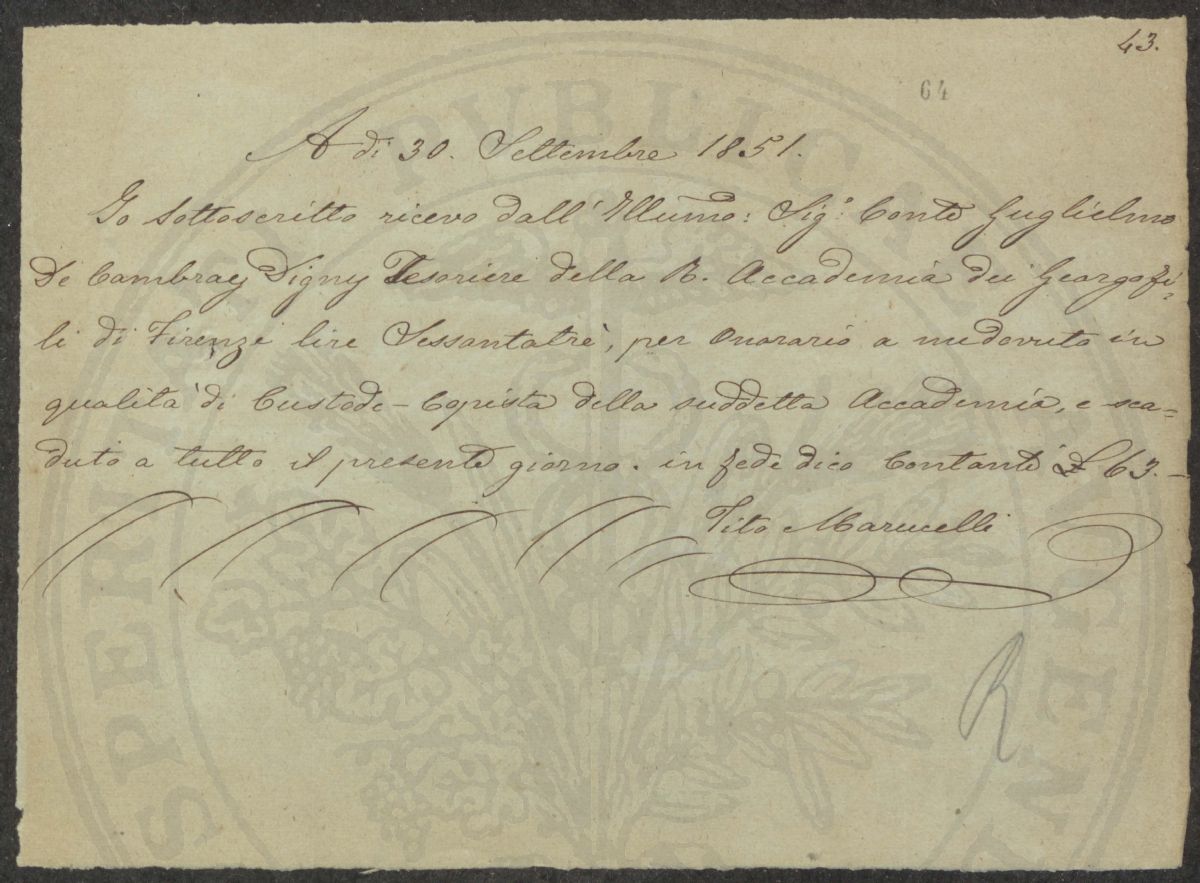 43.
64
A dì 30. Settembre 1851.
Io sottoscritto ricevo dall'Illumo: Sig.r Conte Guglielmo
De Cambray Digny Tesoriere della R. Accademia dei Georgofi=
li di Firenze lire Sessantatrè, per Onorario a me dovuto in
qualità di Custode-Copista della suddetta Accademia, e sca=
duto a tutto il presente giorno. in fede dico Contanti £ 63.-
Tito Marucelli
R
PUBLICAE
PROSPERITATI